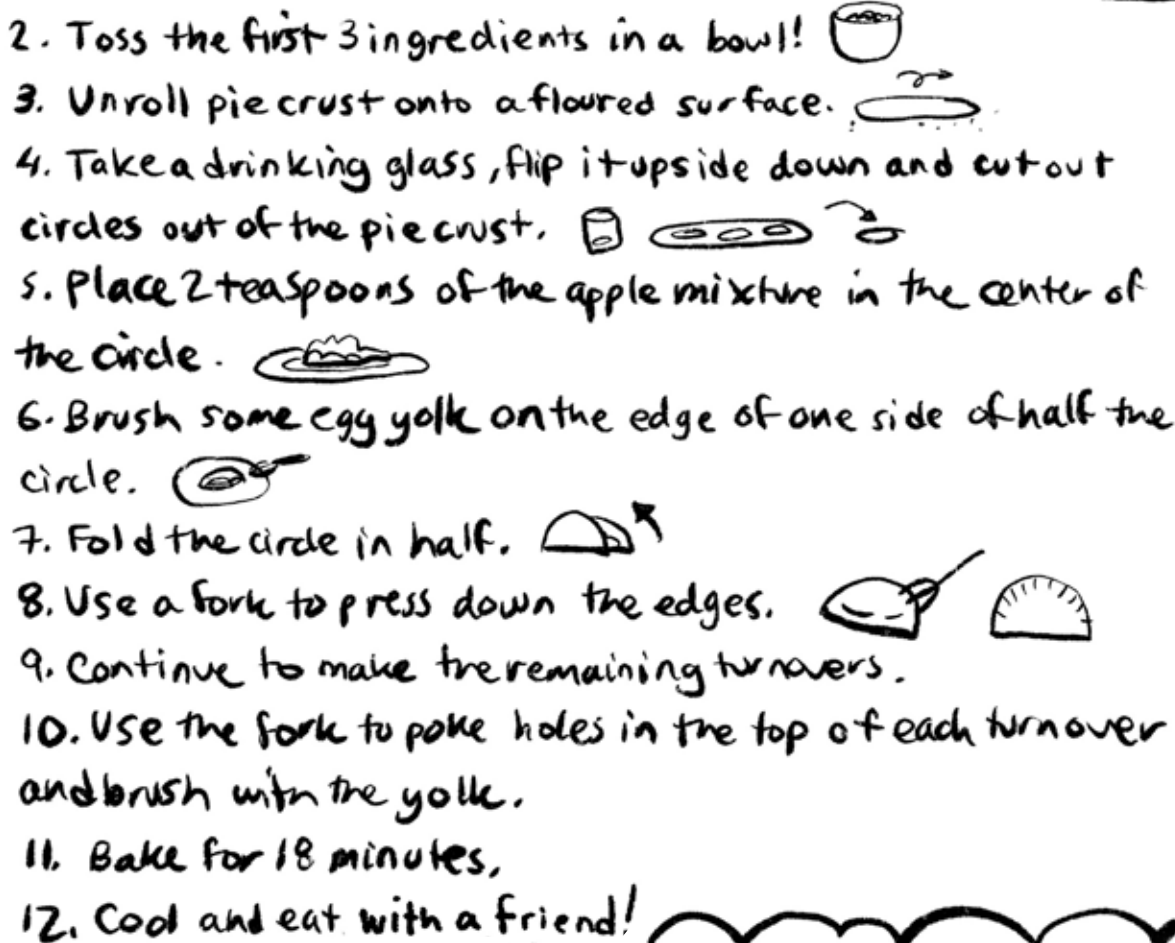 2. Toss the first 3 ingredients in a bowl!
3. Unroll pie crust onto a floured surface.
4. Take a drinking glass, flip it upside down and cut out
circles out of the pie crust.
5. Place 2 teaspoons of the apple mixture in the center of
the circle.
6. Brush some egg yolk on the edge of one side of half the
circle.
7. Fold the circle in half.
8. Use a fork to press down the edges.
9. Continue to make the remaining turnovers.
10. Use the fork to poke holes in the top of each turnover
and brush with the yolk.
11. Bake for 18 minutes.
12. Cool and eat with a friend!